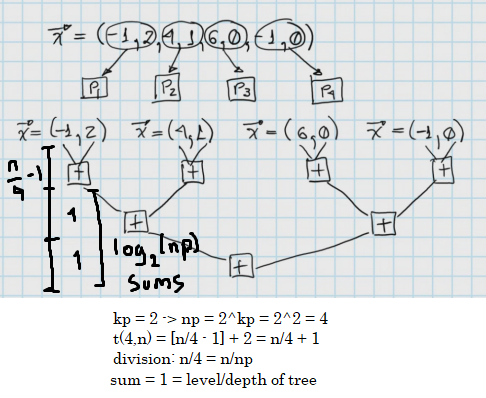 x = (-1, 2, 4, 1, 6, 0, -1, 0)
P1 P2 P3 P4
x = (-1, 2) x = (4, 1) x = (6, 0) x = (-1, 0)
n/4 - 1 + + + +
1 1 + +
log2(np)
sums +
kp = 2 -> np = 2^kp = 2^2 = 4
t(4,n) = [n/4 - 1] + 2 = n/4 + 1
division: n/4 = n/np
sum = 1 = level/depth of tree